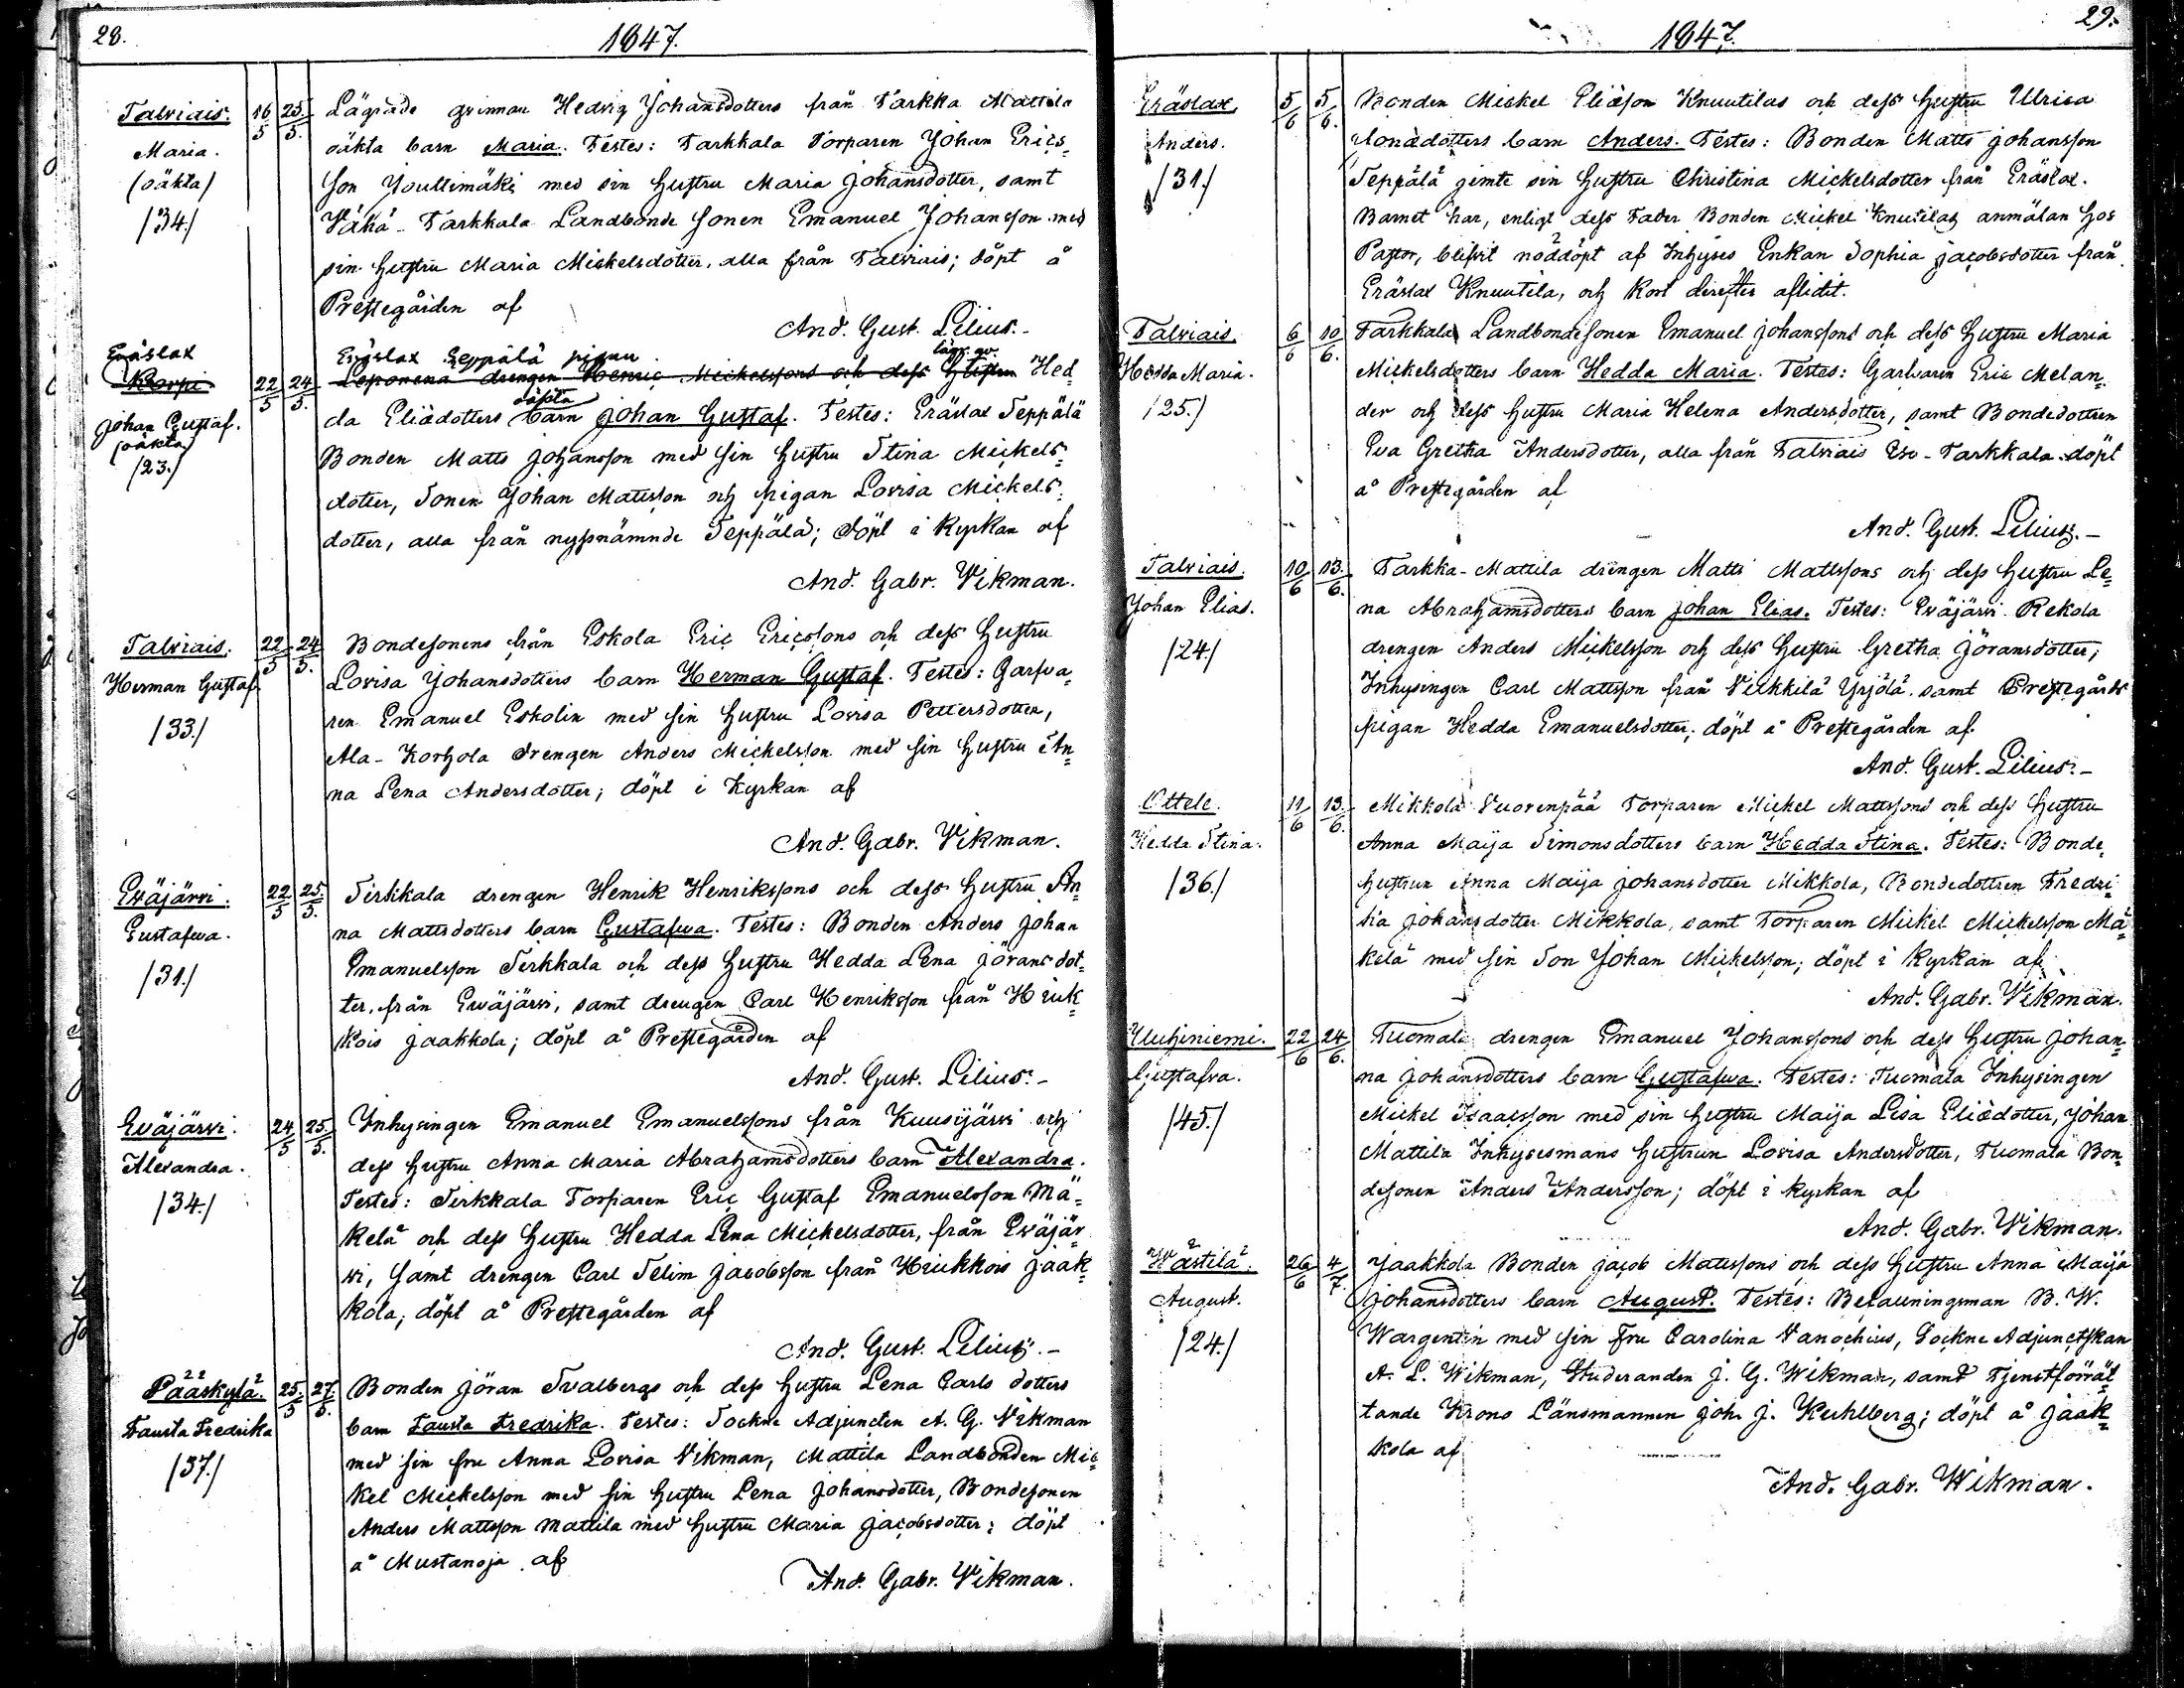 28.
1847.
Talviais.
Maria.
(oäkta)
/34./
16/5 23./5.
Lägrade qvinnan Hedvig Johansdotters från Tarkka Mattila
oäkta barn Maria. Testes: Tarkkala Torparen Johan Erics-
son Jouttimäki med sin hustru Maria Johansdotter, samt
Tarkkala Landbonde sonen Emanuel Johansson med
sin hustru Maria Mickelsdotter, alla från Talviais; döpt å
Prestegården af
And. Gust. Lilius.-
Eräslax
Korpi
Johan Gustaf.
(oäkta)
/23./
22/5 24/5.
Eräslax Seppälä pigan lägr. qv.
Leponena drengen Henric Mickelssons och dess Hustru Hed-
oäkta
da Eliædotters barn Johan Gustaf. Testes: Eräslax Seppälä
Bonden Matts Johansson med sin hustru Stina Mickels-
dotter, Sonen Johan Mattsson och pigan Lovisa Mickels-
dotter, alla från nyssnämnde Seppälä; döpt i Kyrkan af
And. Gabr. Vikman.
Talviais.
Herman Gustaf
/33./
22/5 24/5.
Bondesonens från Eskola Eric Ericssons och dess hustru
Lovisa Johansdotters barn Herman Gustaf. Testes: Garfva-
ren Emanuel Eskolin med sin hustru Lovisa Pettersdotter,
Ala-Korhola drengen Anders Mickelsson med sin hustru An-
na Lena Andersdotter; döpt i Kyrkan af
And. Gabr. Vikman.
Eväjärvi.
Gustafwa.
/31./
22/5 25./5.
Sirkkala drengen Henrik Henrikssons och dess hustru An-
na Mattsdotters barn Gustafwa. Testes: Bonden Anders Johan
Emanuelsson Sirkkala och dess hustru Hedda Lena Jöransdot-
ter, från Eväjärvi, samt drengen Carl Henriksson från Hiuk-
kois Jaakkola; döpt å Prestegården af
And. Gust. Lilius.-
Eväjärvi.
Alexandra.
/34./
24/5 25./5.
Inhysingen Emanuel Emanuelssons från Kuusijärvi och
dess hustru Anna Maria Abrahamsdotters barn Alexandra.
Testes: Sirkkala Torparen Eric Gustaf Emanuelsson Mä-
kelä och dess hustru Hedda Lena Mickelsdotter, från Eväjär-
vi, samt drengen Carl Selim Jacobsson från Hiukkois Jaak-
kola; döpt å Prestegården af
And. Gust. Lilius.-
Pääskylä.
Fausta Fredrika
/37./
25./5 27./5.
Bonden Jöran Svalbergs och dess hustru Lena Carls dotters
barn Fausta Fredrika. Testes: Sockne Adjuncten A. G. Vikman
med sin fru Anna Lovisa Vikman, Mattila Landbonden Mic-
kel Mickelsson med sin hustru Lena Johansdotter, Bondesonen
Anders Mattsson Mattila med hustru Maria Jacobsdotter; döpt
å Mustanoja af
And. Gabr. Vikman.
29.
1847.
Eräslax.
Anders.
/31./
5/6 5/6.
Bonden Mickel Eliæson Knuutilas och dess hustru Ulrica
dotters barn Anders. Testes: Bonden Matts Johansson
Seppälä jemte sin hustru Christina Mickelsdotter från Eräslax.
Barnet har, enligt dess Fader Bonden Mickel Knutilas anmälan hos
Pastor, blifvit nöddöpt af Inhyses Enkan Sophia Jacobsdotter från
Eräslax Knuutila, och kort derefter aflidit.
Talviais.
Hedda Maria.
/25./
6/6 10/6.
Tarkkala Landbondesonen Emanuel Johanssons och dess hustru Maria
Mickelsdotters barn Hedda Maria. Testes: Garfvaren Eric Melan-
der och dess hustru Maria Helena Andersdotter, samt Bondedottren
Eva Gretha Andersdotter, alla från Talviais Iso-Tarkkala. döpt
å Prestegården af
And. Gust. Lilius.-
Talviais.
Johan Elias.
/24./
10/6 13./6.
Tarkka-Mattila drengen Matts Mattssons och dess hustru Le-
na Abrahamsdotters barn Johan Elias. Testes: Eväjärvi Rekola
drengen Anders Mickelsson och dess hustru Gretha Jöransdotter,
Inhysingen Carl Mattsson från Yrjölä. samt Prestegårds
pigan Hedda Emanuelsdotter; döpt å Prestegården af
And. Gust. Lilius.-
Ottele.
Hedda Stina.
/36./
11/6 13./6.
Mikkola Vuorenpää Torparen Mickel Mattssons och dess hustru
Anna Maija Simonsdotters barn Hedda Stina. Testes: Bonde-
hustrun Anna Maija Johansdotter Mikkola, Bondedottren Fredri-
ka Johansdotter Mikkola, samt Torparen Mickel Mickelsson Mä-
kelä med sin Son Johan Mickelsson; döpt i Kyrkan af
And. Gabr. Vikman.
Uuhiniemi.
Gustafva.
/45./
22/6 24/6.
Tuomala drengen Emanuel Johanssons och dess hustru Johan-
na Johansdotters barn Gustafwa. Testes: Tuomala Inhysingen
Mickel Isaacsson med sin hustru Maija Lisa Eliædotter, Johan
Mattila Inhysesmans hustrun Lovisa Andersdotter, Tuomala Bon-
desonen Anders Andersson; döpt i kyrkan af
And. Gabr. Wikman.
Wästilä.
August.
/24./
26/6 4/7.
Jaakkola Bonden Jacob Mattssons och dess hustru Anna Maija
Johansdotters barn August. Testes: Befallningsman B. W.
Wargentin med sin Fru Carolina Vanochius, Sockne Adjunctskan
A. L. Wikman, Studeranden J. G. Wikman, samt Tjenstförrät-
tande Krono Länsmannen Joh. J. Kuhlberg; döpt å Jaak-
kola af
And. Gabr. Wikman.